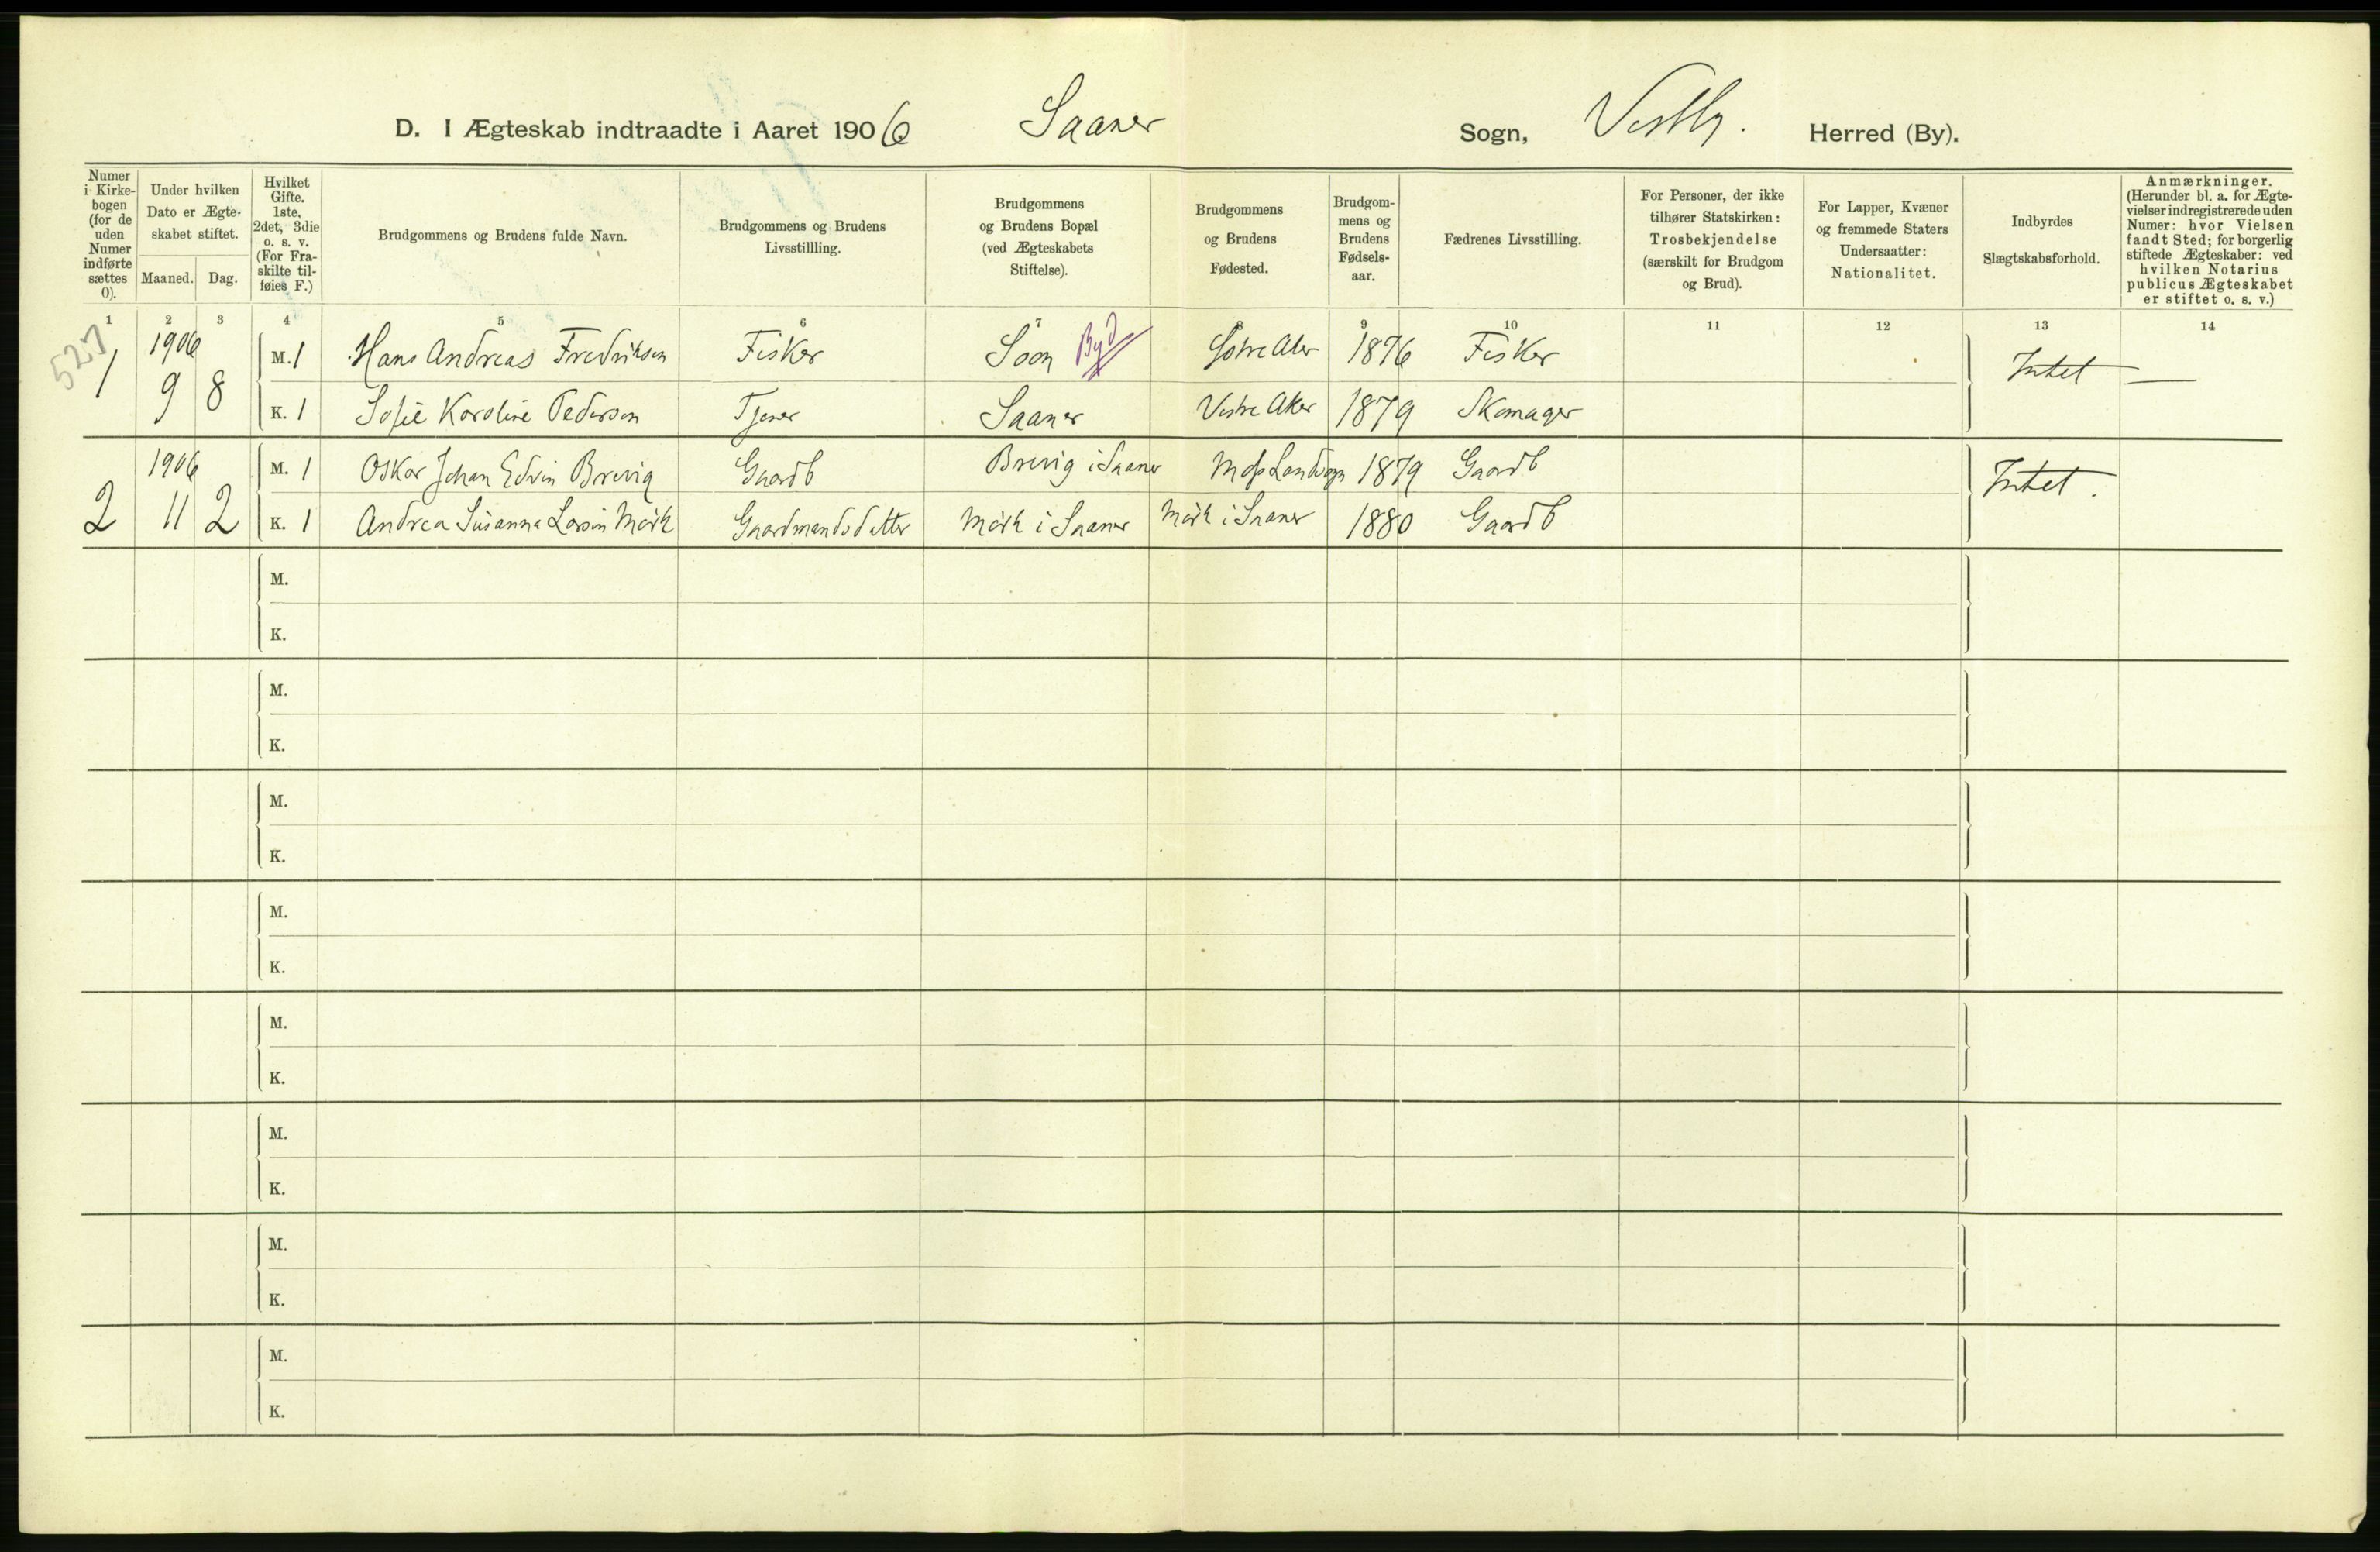 D. I Ægteskab indtraadte i Aaret 1906 Saaner Sogn, Vestby. Herred (By).
Numer i Kirkebogen (for de uden Numer indførte sættes 0).
Under hvilken Dato er Ægteskabet stiftet.
Maaned. Dag.
Hvilket Gifte. 1ste, 2det, 3die o. s. v. (For Fraskilte tilføies F.)
Brudgommens og Brudens fulde Navn.
Brudgommens og Brudens Livsstillling.
Brudgommens og Brudens Bopæl (ved Ægteskabets Stiftelse).
Brudgommens og Brudens Fødested.
Brudgommens og Brudens Fødselsaar.
Fædrenes Livsstilling.
For Personer, der ikke tilhører Statskirken: Trosbekjendelse (særskilt for Brudgom og Brud).
For Lapper, Kvæner og fremmede Staters Undersaatter: Nationalitet.
Indbyrdes Slægtskabsforhold.
Anmærkninger. (Herunder bl. a. for Ægtevielser indregistrerede uden Numer: hvor Vielsen fandt Sted; for borgerlig stiftede Ægteskaber: ved hvilken Notarius publicus Ægteskabet er stiftet o. s. v.)
1 2 3 4 5 6 7 8 9 10 11 12 13 14
527
1 1906 9 8 M. 1 Hans Andreas Fredriksen Fisker Soon Byd 1876 Fisker Intet —
K. 1 Sofie Karoline Pedersen Tjener Saaner Vestre Aker 1879 Skomager
2 1906 11 2 M. 1 Oskar Johan Edvin Brevig Gaardb Brevig i Saaner Moss Landsogn 1879 Gaardb Intet.
K. 1 Andrea Susanna Larsin Mörk Gaardmandsdatter Mörk i Saaner Mörk i Saaner 1880 Gaardb
M.
K.
M.
K.
M.
K.
M.
K.
M.
K.
M.
K.
M.
K.
M.
K.